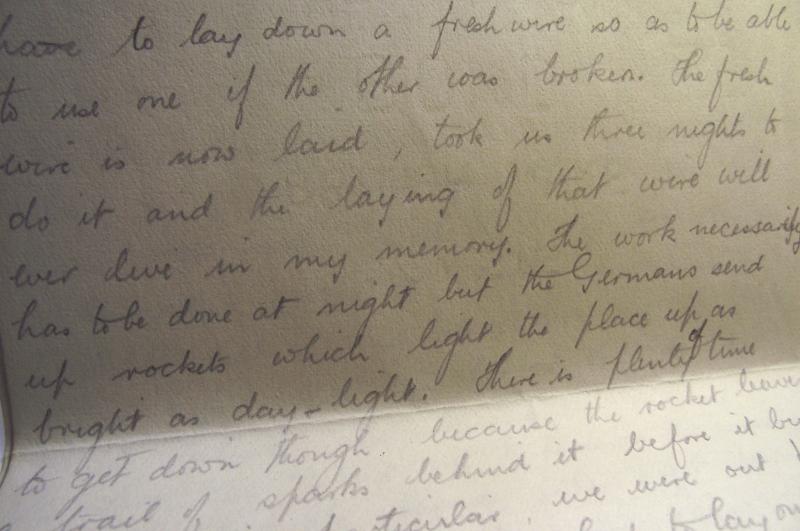 have to lay down a fresh wire so as to be able
to use one if the other was broken. The fresh
wire is now laid, took us three nights to
do it and the laying of that wire will
ever live in my memory. The work necessarily
has to be done at night but the Germans send
up rockets which light the place up as
bright as day-light. There is plenty of time
to get down though because the rocket leaves
trail of sparks behind it before it
particular, we were out
to lay